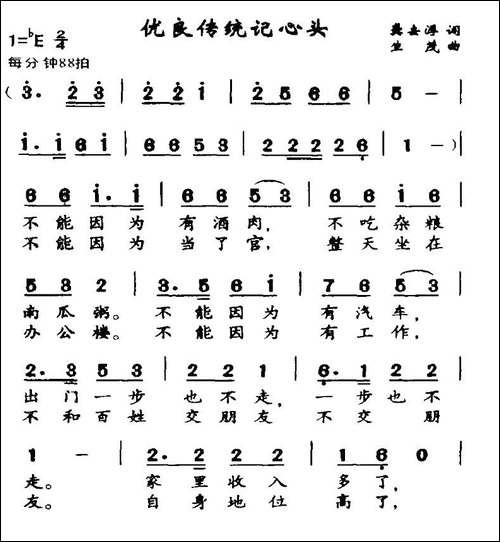 优良传统记心头
1=♭E 2/4
每分钟88拍
词
生茂 曲
(3. 2 3 | 2 2 i | 2 5 6 6 | 5 - |
i. i 6 i | 6 6 5 3 | 2 2 2 2 6 | 1 -) |
6 6 i. i | 6 6 5 3 | 6 6 i 6 |
不能因为 有酒肉, 不吃杂粮
不能因为 当了官, 整天坐在
5 3 2 | 3. 5 6 i | 7 6 5 3 |
南瓜粥。不能因为 有汽车,
办公楼。不能因为 有工作,
2. 3 5 3 | 2 2 1 | 6. 1 2 2 |
出门一步 也不走, 一步也不
不和百姓 交朋友 不交朋
1 - | 2. 2 2 2 | 1 6 0 |
走。 家里收入 多了,
友。 自身地位 高了,